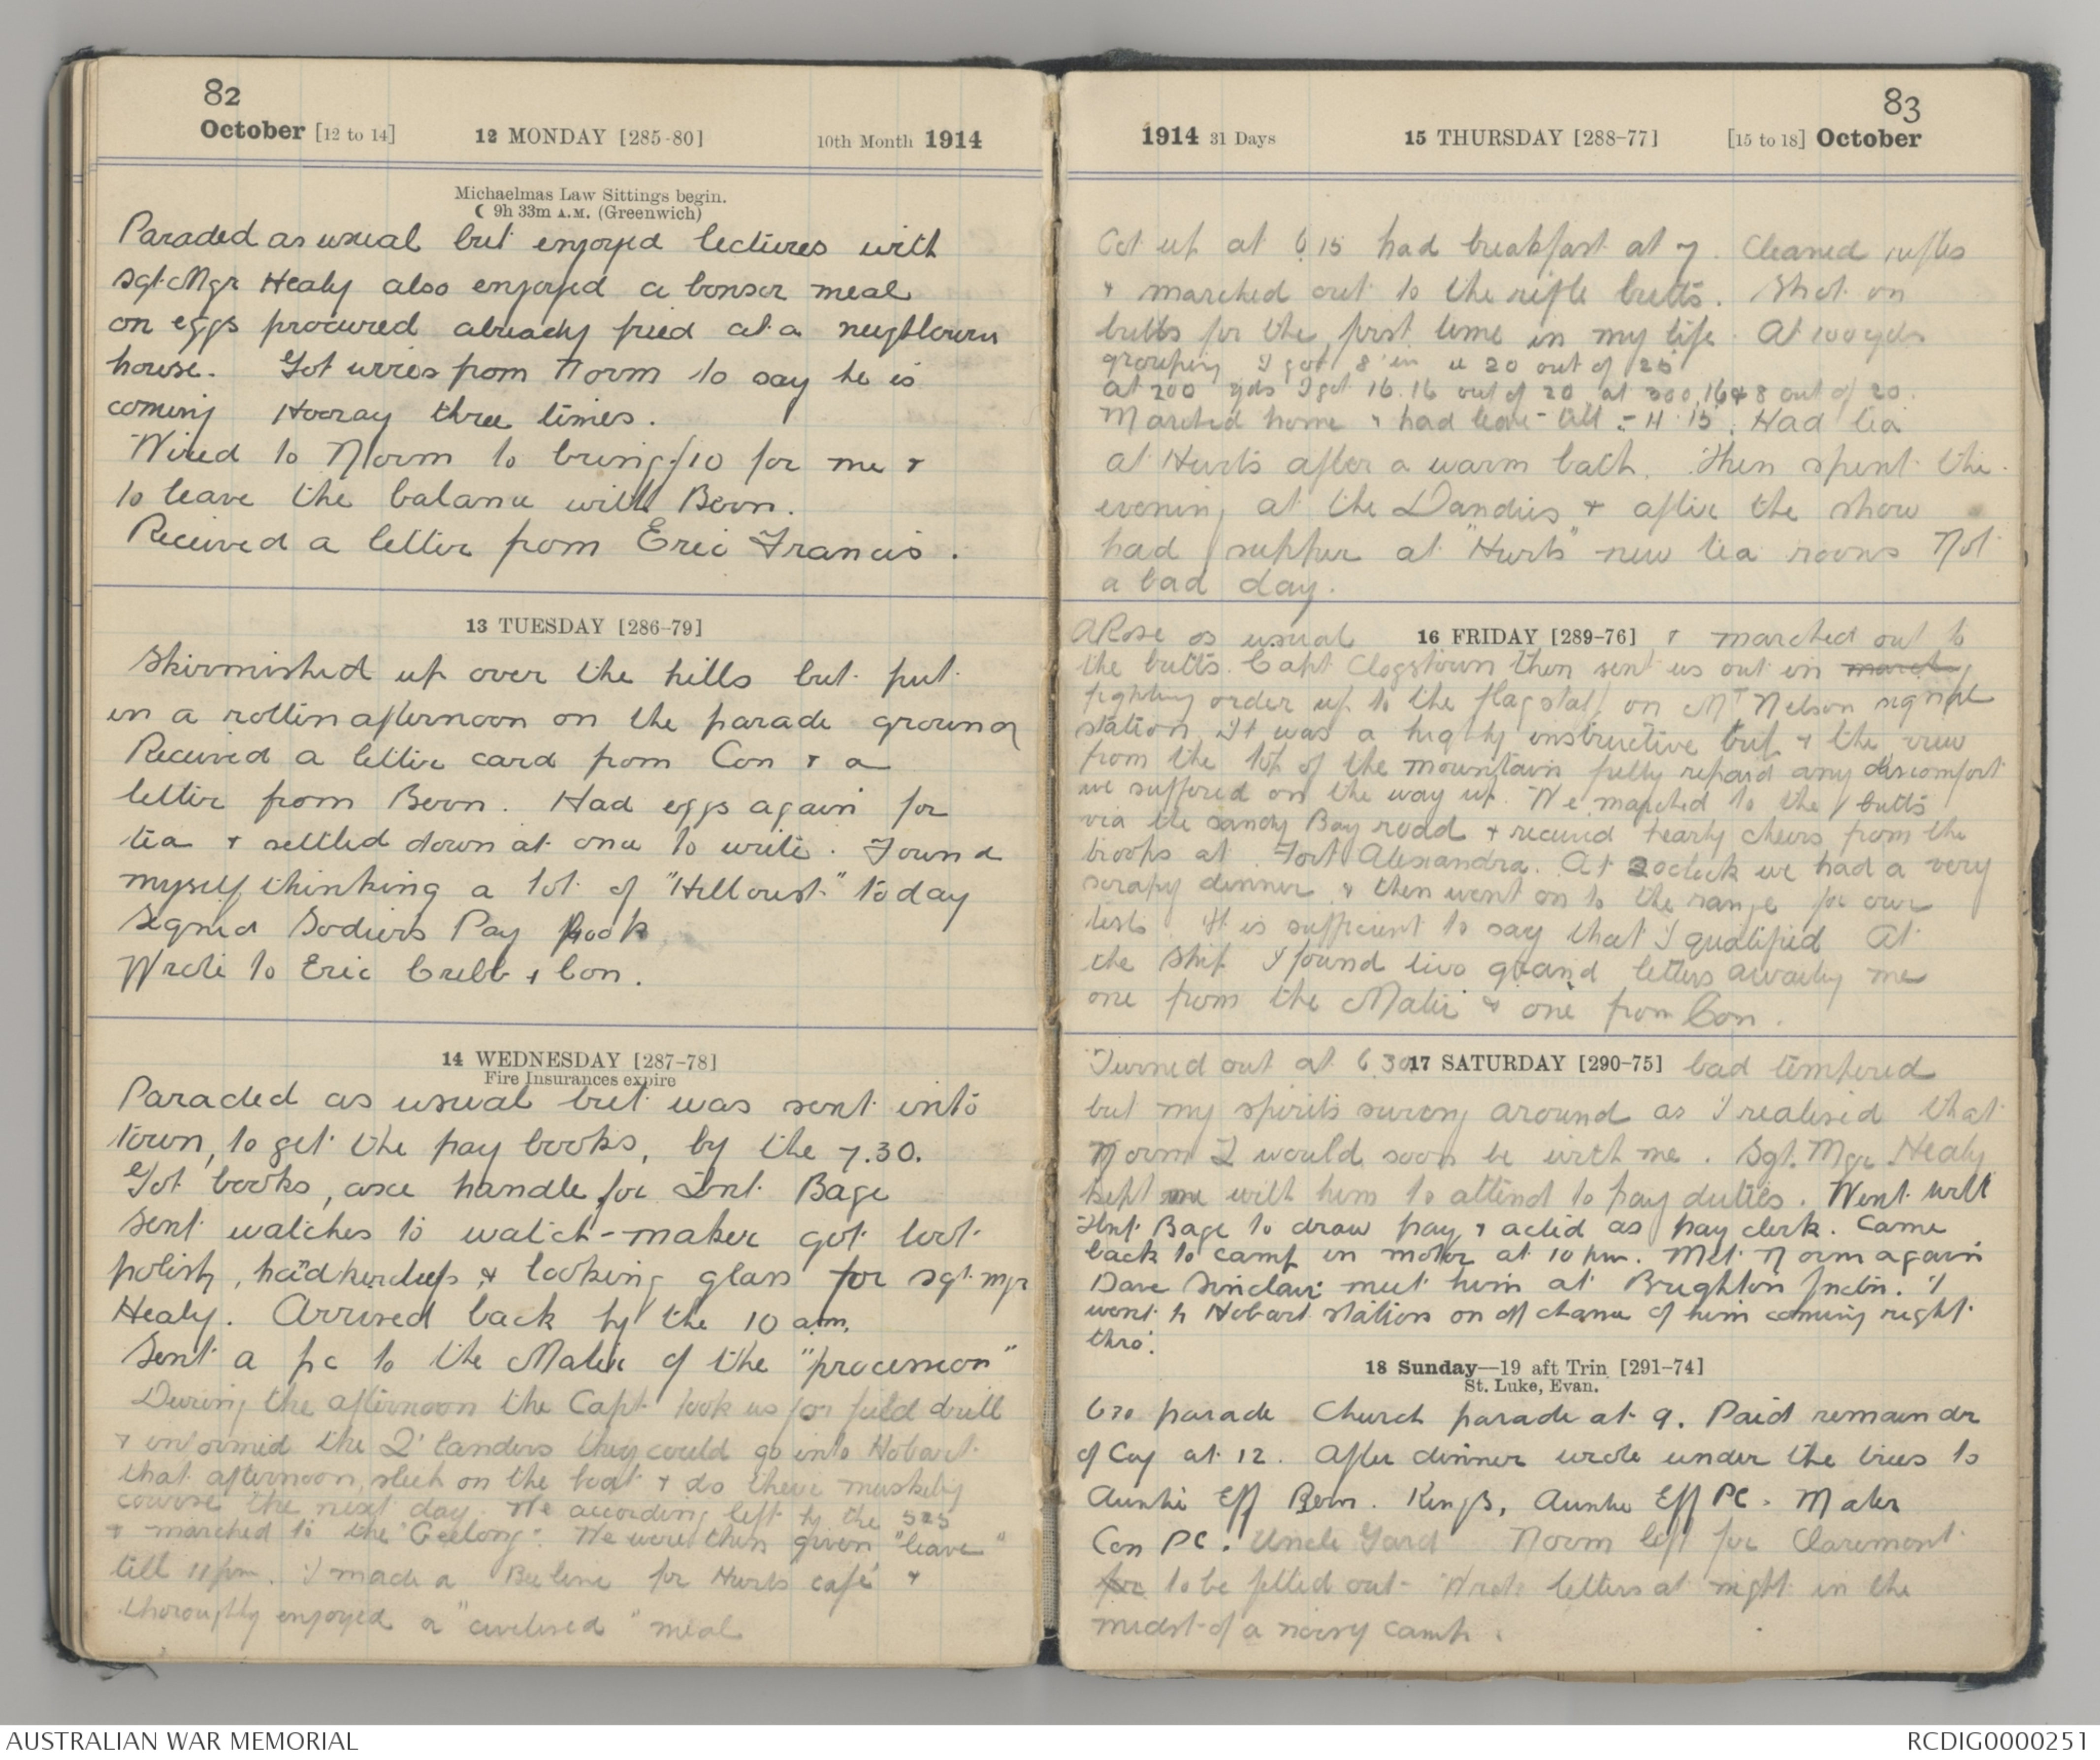 82
October [12 to 14] 12 MONDAY [285-80] 10th Month 1914
Michaelmas Law Sittings begin.
☾ 9h 33m A.M. (Greenwich)
Paraded as usual but enjoyed lectures with
Sgt. Mgr Healy also enjoyed a bonser meal
on eggs procured already fried at a neighbours
house. Got wires from Norm to say he is
coming Hooray three times.
Wired to Norm to bring £10 for me &
to leave the balance with Bern.
Received a letter from Eric Francis.
13 TUESDAY [286-79]
Skirmished up over the hills but put
in a rotten afternoon on the parade ground
Received a letter card from Con & a
letter from Bern. Had eggs again for
tea & settled down at once to write. Found
myself thinking a lot of "Hillcrest" today
Signed Sodiers Pay Book
Wrote to Eric Cribb & Con.
14 WEDNESDAY [287-78]
Fire Insurances expire
Paraded as usual but was sent into
town, to get the pay books, by the 7.30.
Got books, axe handle for Lnt. Bage
sent watches to watch-maker got boot
polish, handkercheifs & looking glass for Sgt. Mgr
Healy. Arrived back by the 10 a.m.
Sent a pc to the Mater of the "procession"
During the afternoon the Capt took us for field drill
& informed the Q'landers they could go into Hobart
that afternoon, sleep on the boat & do there musketry
course the next day. We according left by the 525
& marched to the "Geelong". We were then given "leave"
till 11 pm. I made a Bee line for Hurts café &
thoroughly enjoyed a "civilised" meal
83
1914 31 Days 15 THURSDAY [288-77] [15 to 18] October
Got up at 6.15 had breakfast at 7. Cleaned rifles
& marched out to the rifle butts. Shot on
butts for the first time in my life. At 100 yds
grouping I got 8 in 20 out of 25
at 200 yds I got 16.16 out of 20 at 300, 16 & 8 out of 20.
Marched home & had leave till 11.15. Had tea
at Hurts after a warm bath. Then spent the
evening at the Dandies & after the show
had supper at "Hurts" new tea rooms Not
a bad day.
ARose as usual 16 FRIDAY [289-76] & marched out to
the butts. Capt Clogstown then sent us out in
fighting order up to the flagstaff on Mt Nelson signal
station. It was a highly instructive but & the view
from the top of the mountain fully repaid any discomfort
we suffered on the way up. We marched to the butts
via the Sandy Bay road & received hearty cheers from the
troops at Fort Alexandra. At 2 oclock we had a very
scrapy dinner & then went on to the range for our
tests. It is sufficient to say that I qualified At
the ship I found two grand letters awaitng me
one from the Mater & one from Con.
Turned out at 6.30 17 SATURDAY [290-75] bad tempered
but my spirits swrong around as I realised that
Norm I would soon be with me. Sgt. Mgr Healy
kept me with him to attend to pay duties. Went with
Lnt. Bage to draw pay & acted as pay clerk. Came
back to camp in motor at 10 pm. Met Norm again
Dave Sinclair meet him at Brighton Jnctn. I
went to Hobart station on off chance of him coming right
thro'.
18 Sunday—19 aft Trin [291-74]
St. Luke, Evan.
630 parade Church parade at 9. Paid remaindr
of Coy at 12. After dinner wrote under the trees to
Auntie Eff Bern. Kings, Auntie Eff PC. Mater
Con PC. Uncle Gard Norm left for Claremont
for to be fitted out. Wrote letters at night in the
midst of a noisy camp.
AUSTRALIAN WAR MEMORIAL
RCDIG0000251